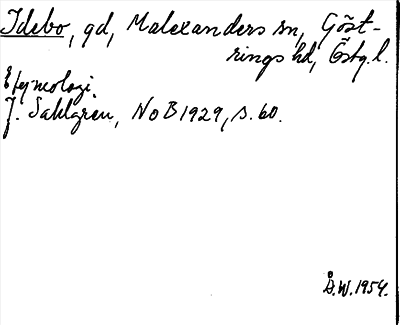 Idebo, gd, Malexanders sn, Göst-
rings hd, Östg.l.
Etymologi.
J. Sahlgren, NoB 1929, s. 60.
Å.W. 1954.